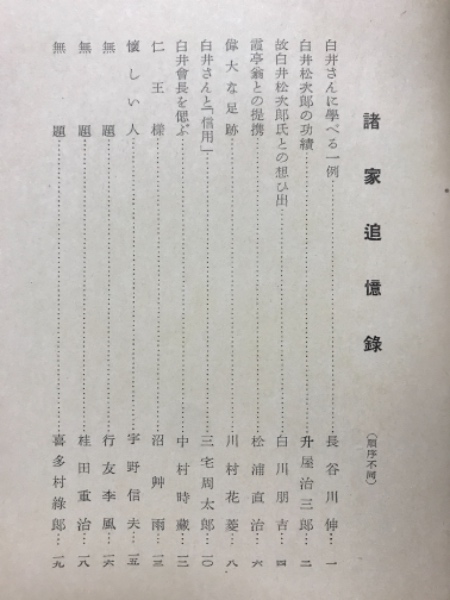 諸家追憶錄
（順序不同）
白井さんに學べる一例……長谷川伸…一
白井松次郎の功績……升屋治三郎…二
故白井松次郎氏との想ひ出……白川朋吉…四
霞亭翁との提携……松浦直治…六
偉大な足跡……川村花菱…八
白井さんと「信用」……三宅周太郎…一〇
白井會長を偲ぶ……中村時藏…一二
仁王樣……沼艸雨…一三
懷しい人……宇野信夫…一五
無題……行友李風…一六
無題……桂田重治…一八
無題……喜多村綠郎…一九